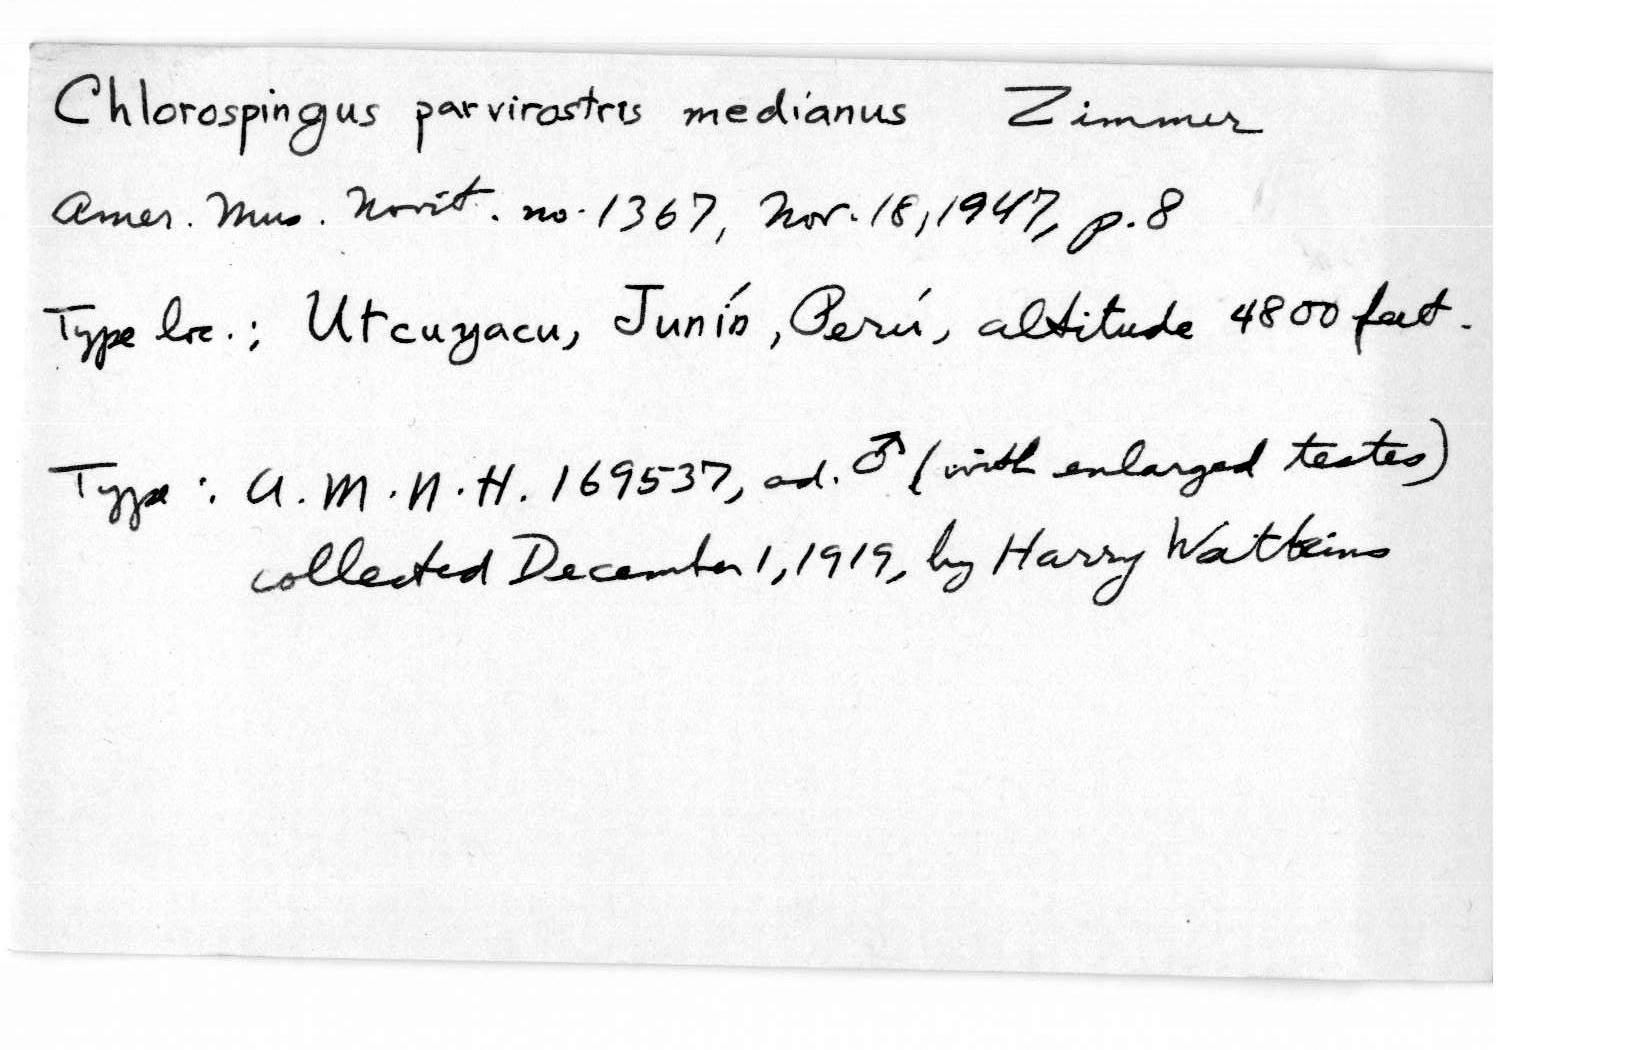 Chlorospingus parvirostris medianus Zimmer
Amer. Mus. Novit. no. 1367, Nov. 18, 1947, p. 8
Type loc.; Utcuyacu, Junín, Perú, altitude 4800 feet.
Type: A.M.N.H. 169537, ad. ♂ (with enlarged testes)
collected December 1, 1919, by Harry Watkins